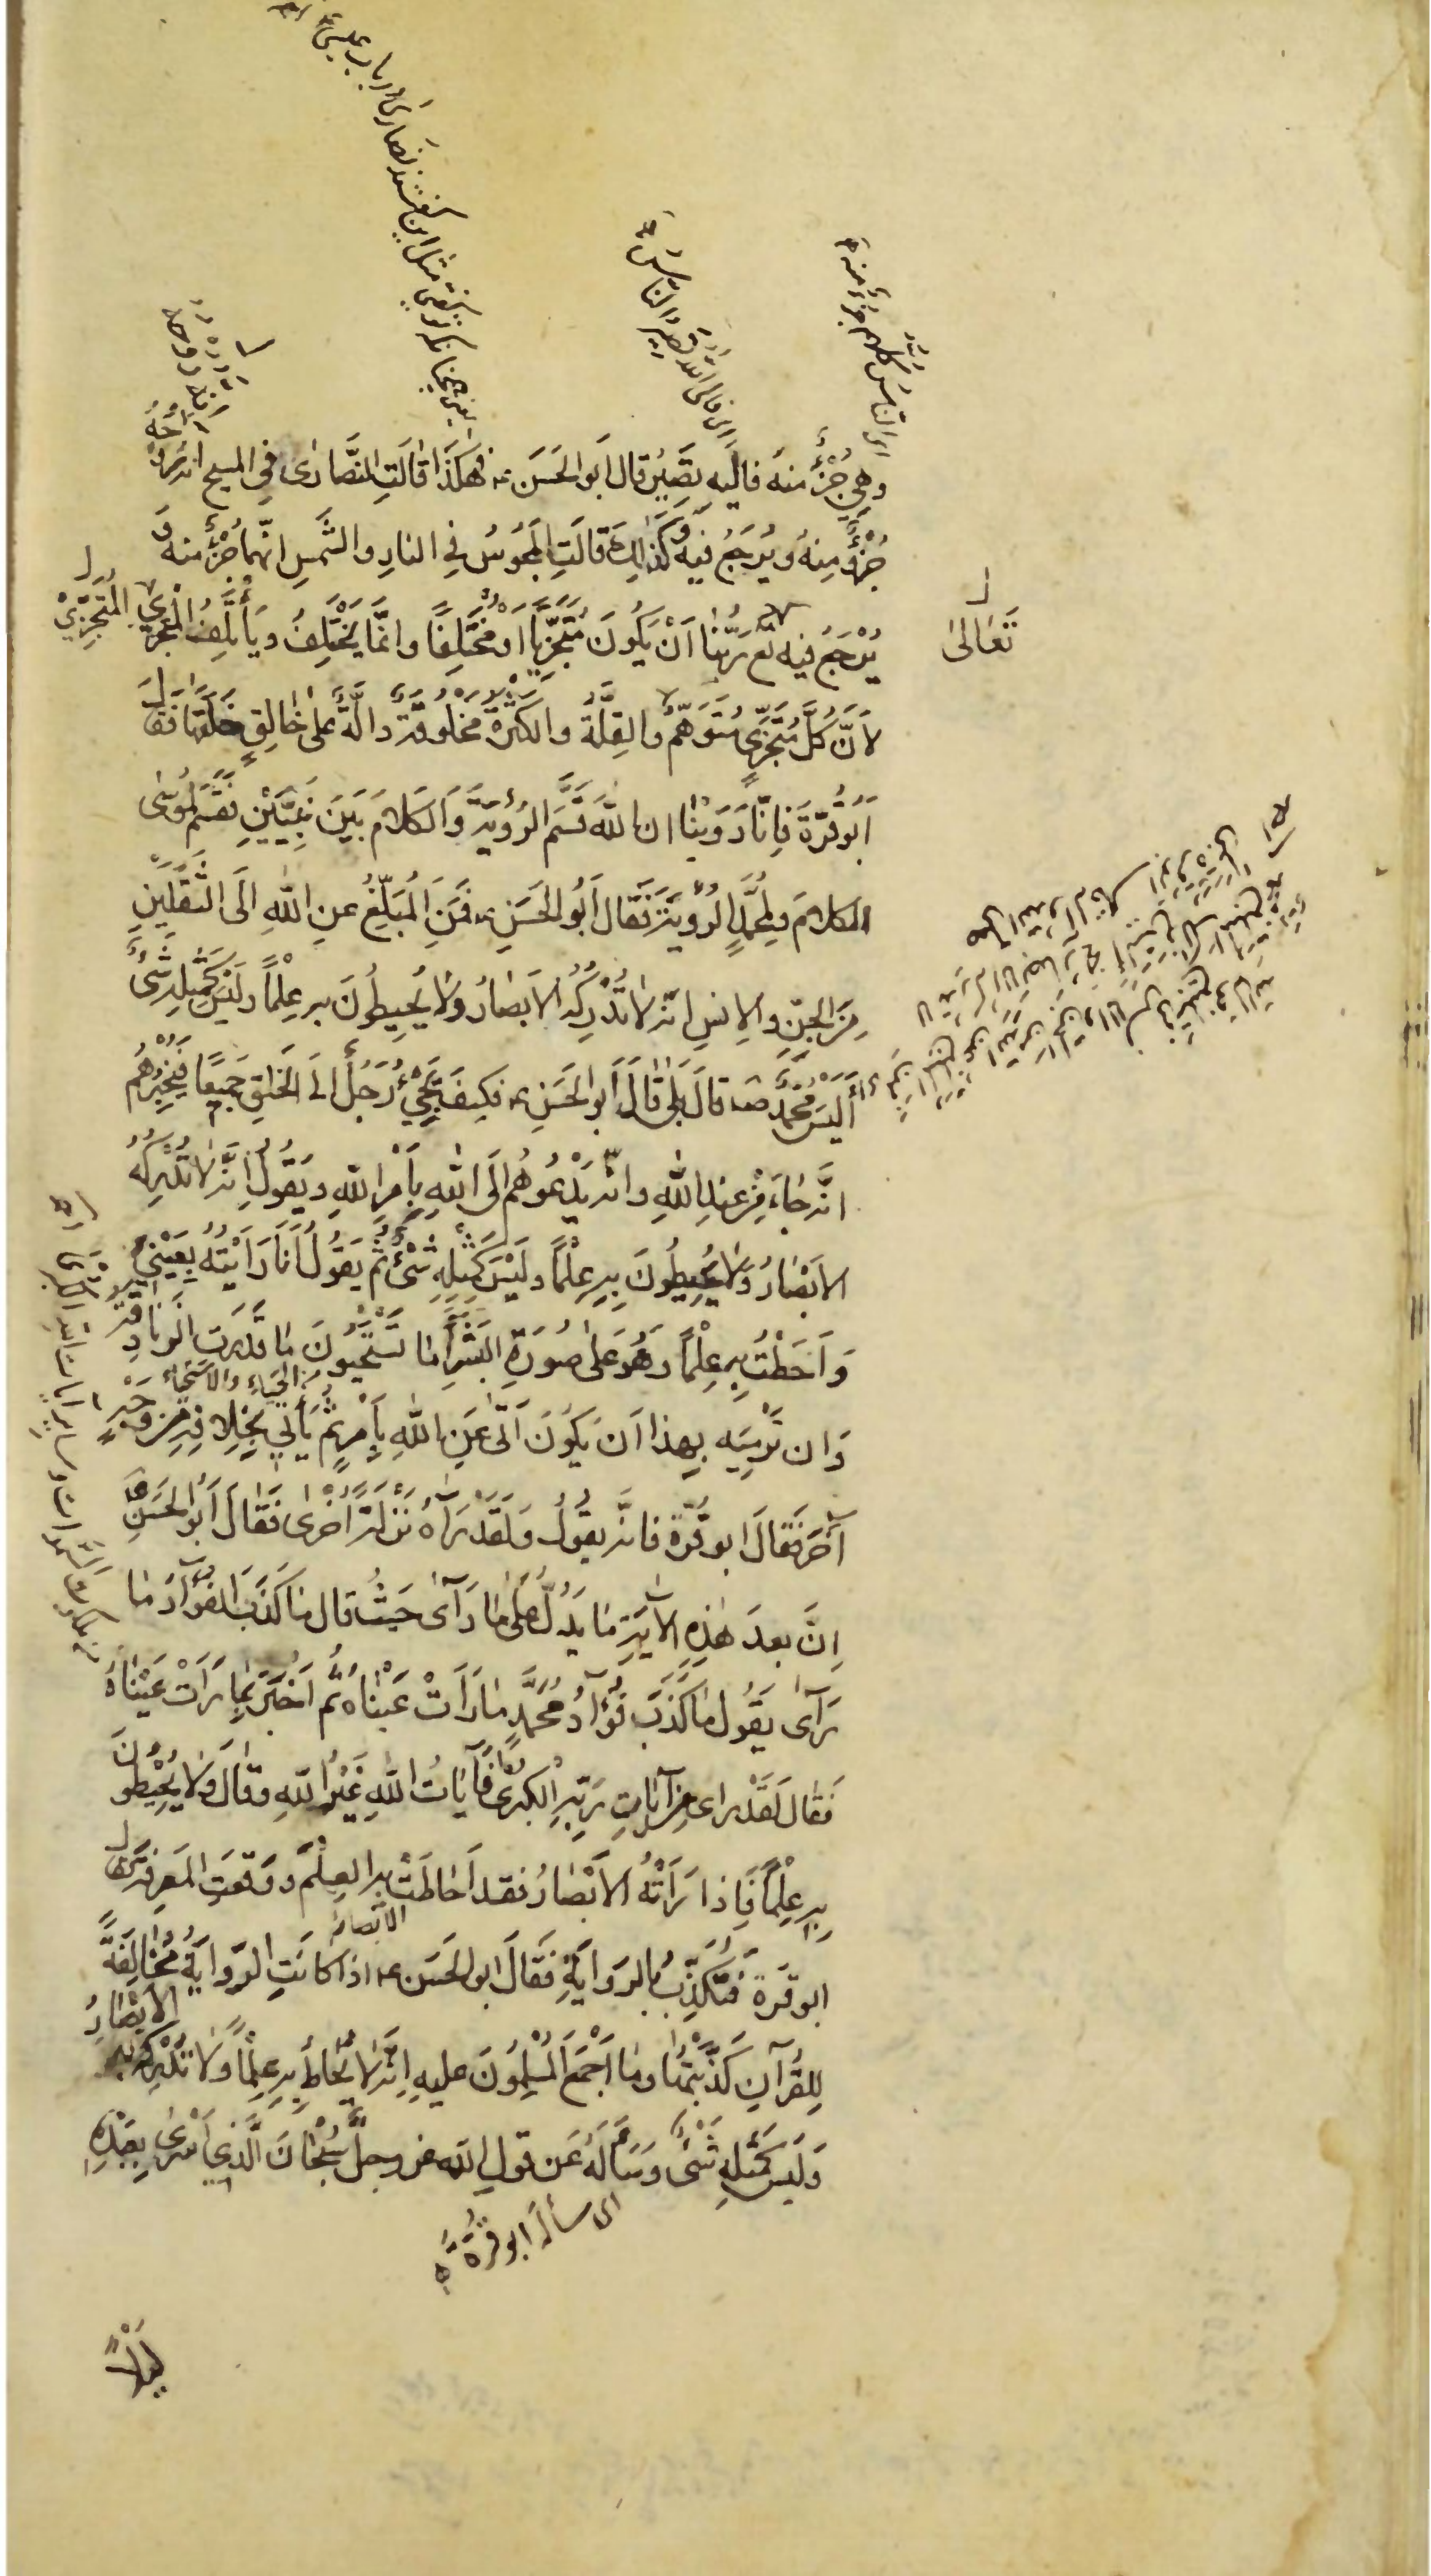 وهي جُزْءٌ منه فاليه يصير قال ابو الحسن ع فهكذا قالت النصارى في المسيح انه روحه
جُزْءٌ مِنهُ ويُرْجَعُ فيه وكذلك قالت المجوس في النار والشمس انهما جزء منه و
يُرْجَعُ فيه تع ربنا اَنْ يكُونَ مُتَجَزِّيًا اَوْ مُختَلِفًا وانّما يَخْتَلِفُ ويَأْتَلِفُ المتجزّي
لاَنَّ كُلَّ مُتَجَزِّي مُتَوَهَّم والقِلَّةُ والكَثْرَة مَخلُوقَة دالَّة على خالِقٍ خلقها فقال
اَبُو قُرَّةَ فَاِنَّا رَوَيْنا ان الله قَسَّمَ الرُؤيَةَ وَالكَلامَ بَيْنَ نَبِيَّيْنِ فقَسَم لموسى
الكلامَ ولمحمّدٍ الرُؤيَةَ فَقال اَبُو الحَسَنِ ع فَمَنِ المُبَلِّغُ عنِ اللهِ اِلَى الثَّقَلَيْنِ
مِنَ الجِنِّ والاِنسِ انّه لا تُدْرِكُهُ الابصَارُ ولا يُحِيطُونَ به عِلْمًا ولَيْسَ كَمِثْلِهِ شَيْءٌ
أَلَيْسَ مُحَمَّدٌ ص قالَ بَلى قالَ اَبو الحَسَنِ ع فكيفَ يَجِيءُ رَجُلٌ الى الخَلقِ جَمِيعًا فَيُخْبِرُهُم
انَّه جاءَ مِنْ عِندِ اللهِ وانّه يَدْعُوهُم اِلَى اللهِ بِاَمْرِ اللهِ ويَقُولُ اِنَّه لا تُدْرِكُهُ
الابْصَارُ وَلا يُحِيطُونَ بِهِ عِلْمًا ولَيْسَ كَمِثْلِهِ شَيْءٌ ثُمَّ يَقُولُ اَنَا رَاَيْتُهُ بِعَيْنِي
وَاَحَطْتُ بِهِ عِلْمًا وَهُوَ عَلى صُورَةِ البَشَرِ اَمَا تَسْتَحْيُونَ مَا قَدَرَتِ الزنادقة
من الحياء والاستحياء
وَان تَرْمِيَه بِهذا اَن يَكُونَ اَتى عَنِ اللهِ بِاَمْرٍ ثُمَّ يَأتي بِخِلافِهِ مِن وَجْهٍ
آخَرَ فَقالَ ابو قُرَّة فانّه يقولُ ولَقَدْ رَآهُ نَزْلَةً اُخْرى فَقَالَ اَبُو الحَسَنِ ع
اِنَّ بعدَ هٰذِهِ الآيَةِ مَا يَدُلُّ عَلى مَا رَآى حَيْثُ قال مَا كَذَبَ الفُؤَادُ مَا
رَآى يَقُولُ مَا كَذَبَ فُؤَادُ مُحَمَّدٍ مَا رَاَتْ عَيْنَاه ثُمَّ اَخْبَرَ بِمَا رَاَتْ عَيْنَاهُ
فَقالَ لَقَدْ رَاى مِن آيَاتِ رَبِّهِ الْكُبْرى فَآيَاتُ اللهِ غَيْرُ اللهِ وقَالَ وَلا يُحِيْطُونَ
بِهِ عِلْمًا فَاِذا رَاَتْهُ الاَبْصَارُ فقد اَحَاطَتْ بِهِ العِلْمَ ووَقَعَتِ المَعرفة فقال
ابو قرة فتُكَذِّبُ بالرِوَايَةِ فَقَالَ ابو الحَسَن ع اذا كانَتِ الرِّوَايَةُ مُخَالِفَةً
لِلقُرآنِ كَذَّبْتُهَا ومَا اَجْمَعَ المُسْلِمُونَ عليهِ اِنَّه لا يُحَاطُ بِهِ عِلْمًا وَلا تُدْرِكُهُ الابْصَارُ
وَلَيْسَ كَمِثْلِهِ شَيْءٌ وَسَأَلَهُ عَن قولِ الله عز وجل سُبْحَانَ الَّذِي اَسْرَى بِعَبْدِهِ
اى سأله ابو قرة
لَيْلًا
تَعَالىٰ
المُتَجَزِّي
الابصار
اى الناس كلهم جزء منه